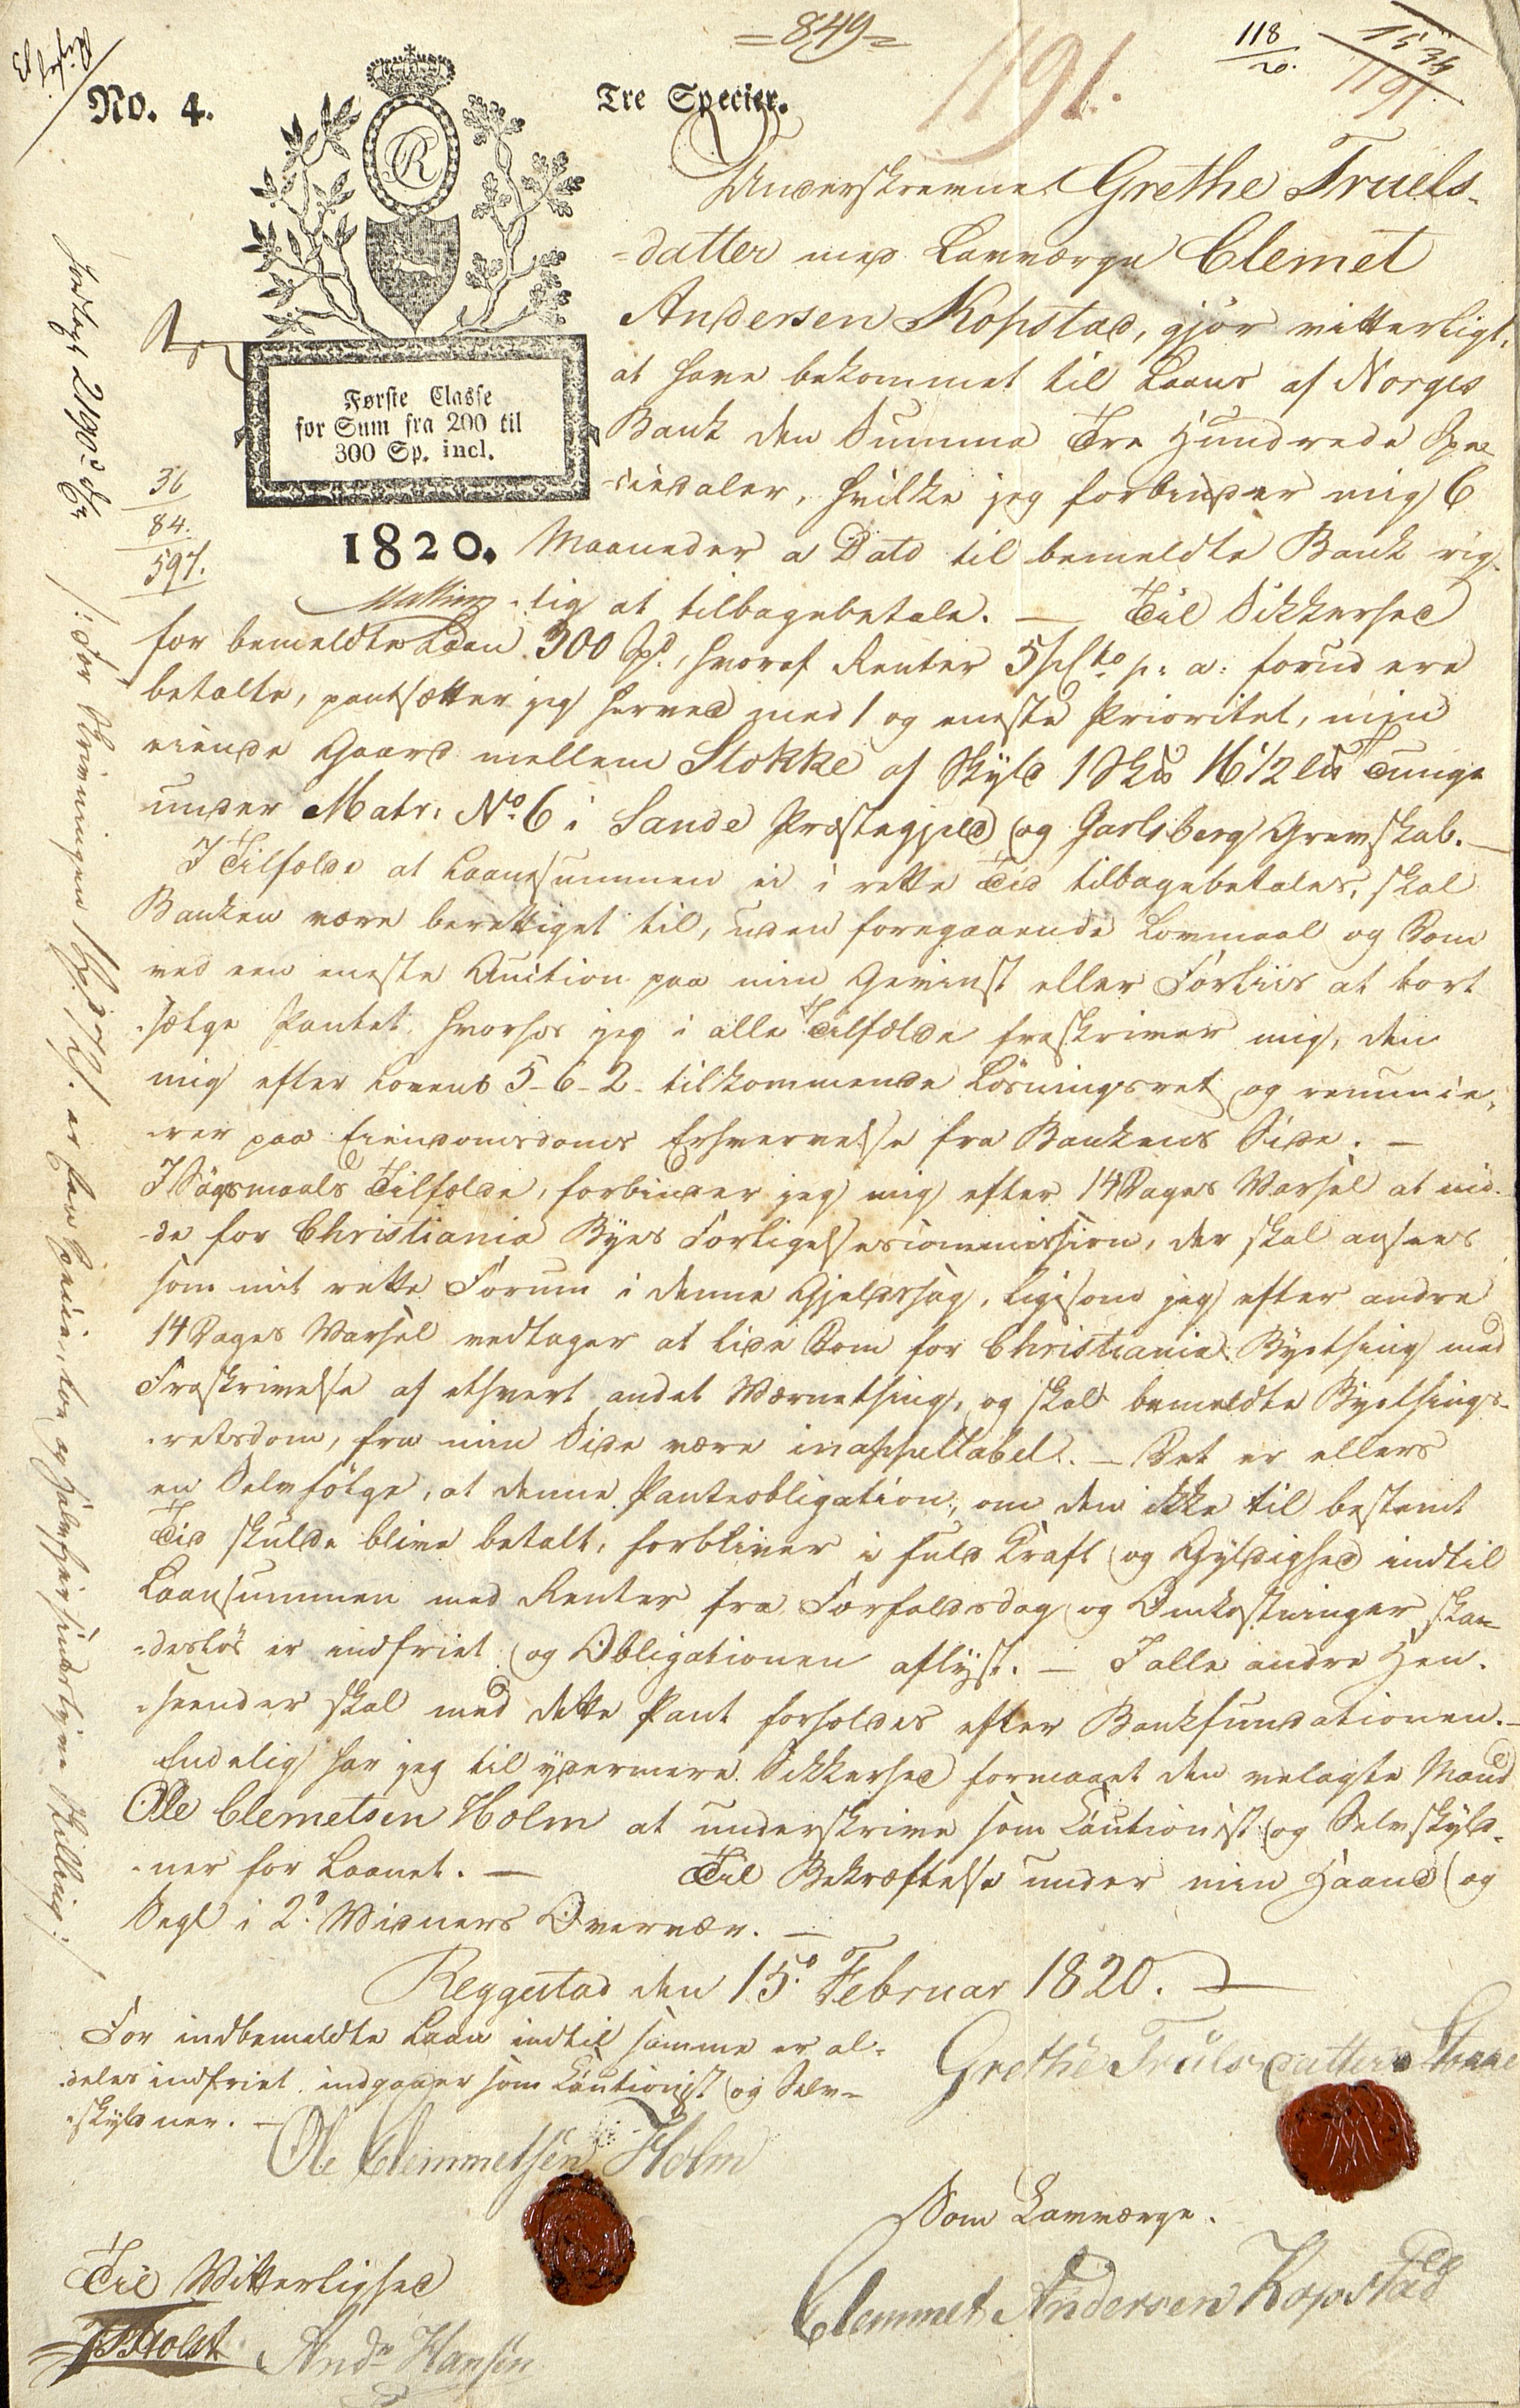 =849=
1191.
118
20.
1534
1191
No. 4.
Tre Species.
Første Classe
for Sum fra 200 til
300 Sp. incl.
1820.
36
84.
597.
Underskrevne Grethe Truels-
-datter med Laugværge Clemet
Andersen Kopstad, gjør vitterligt,
at have bekommet til Laans af Norges
Bank den Summa Tre Hundrede Spe-
-ciedaler, hvilke jeg forbinder mig 6
Maaneder a Dato til bemeldte Bank rig-
-tig at tilbagebetale. — Til Sikkerhed
for bemeldte Laan 300 Spd., hvoraf Renter 5 pCto p: a: forud ere
betalte, pantsætter jeg herved med 1 og eneste Prioritet, min
eiende Gaard mellem Stokke af Skyld 1 Skd 16 1/2 Ld Tunge
under Matr. No 6 i Sande Præstegjeld og Jarlsberg Grevskab. —
I Tilfælde at Laansummen ei i rette Tid tilbagebetales, skal
Banken være berettiget til, uden foregaaende Lovmaal og Dom
ved een eneste Auction paa min Gevinst eller Forliis at bort
-sælge Pantet, hvorhos jeg i alle Tilfælde fraskriver mig, den
mig efter Lovens 5-6-2- tilkommende Løsningsret og renuncie-
-rer paa Eiendomsdoms Erhvervelse fra Bankens Side. —
I Søgsmaals Tilfælde, forbinder jeg mig efter 14 Dages Varsel at mø-
-de for Christiania Byes Forligelsescommission, der skal ansees
som mit rette Forum i denne Gjeldssag, ligesom jeg efter andre
14 Dages Varsel vedtager at lide Dom for Christiania Byething med
Fraskrivelse af ethvert andet Værnething, og skal bemeldte Byethings-
-retsdom, fra min Side være inappellabel. — Det er ellers
en Selvfølge, at denne Panteobligation, om den ikke til bestemt
Tid skulde blive betalt, forbliver i fuld Kraft og Gyldighed indtil
Laansummen med Renter fra Forfaldsdag og Omkostninger ska-
-desløs er indfriet og Obligationen aflyst. — I alle andre Hen-
-seender skal med dette Pant forholdes efter Bankfundationen. —
Endelig har jeg til ydermere Sikkerhed formaaet den velagte Mand
Ole Clemetsen Holm at underskrive som Cautionist og Selvskyld-
-ner for Laanet. — Til Bekræftelse under min Haand og
Segl i 2de Vidners Overvær. —
Reggestad den 15de Februar 1820.
For indbemeldte Laan indtil samme er al-
-deles indfriet indgaaer som Cautionist og Selv-
-skyldner. —
Ole Clemmetsen Holm
Grethe Trulsdatter
Som Laugværge.
Clemmet Andersen Kopstad
Til Vitterlighed
Holst
Andr Hansen
/: For Skrivningen 1 Spd er